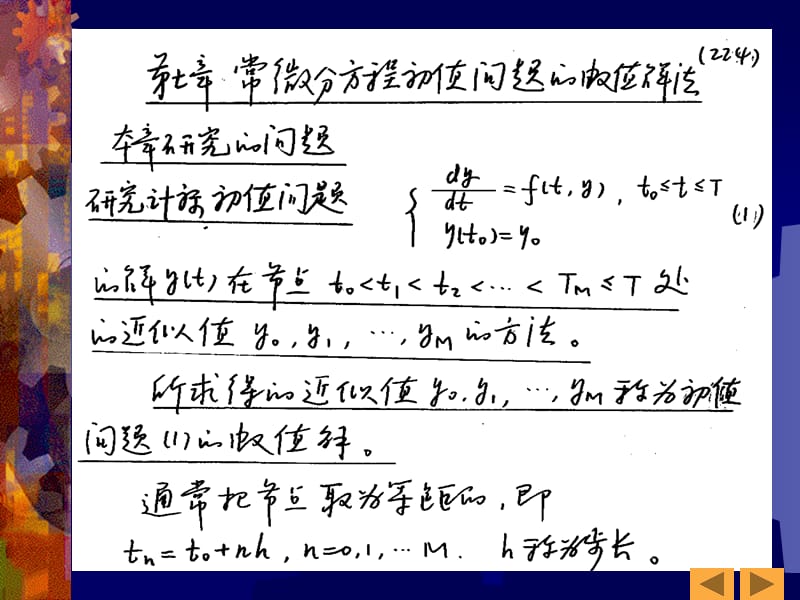 第七章 常微分方程初值问题的数值解法 (224)
本章研究的问题
研究计算初值问题 { dy/dt = f(t, y), t₀≤t≤T
y(t₀)=y₀ (1)
的解y(t)在节点 t₀<t₁<t₂<⋯<T_M≤T 处
的近似值 y₀, y₁, ⋯, y_M 的方法。
所求得的近似值 y₀, y₁, ⋯, y_M 称为初值
问题(1)的数值解。
通常把节点取为等距的, 即
t_n = t₀+nh, n=0,1,⋯ M. h称为步长。